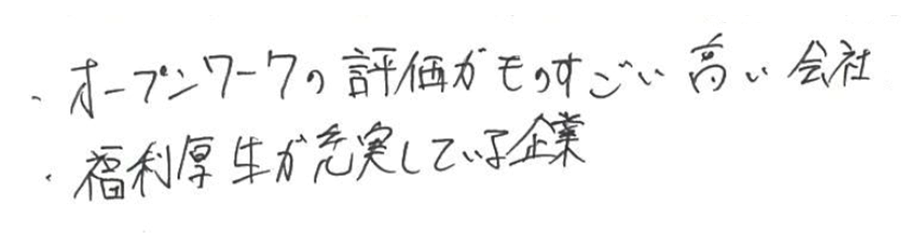 ・オープンワークの評価がものすごい高い会社
・福利厚生が充実している企業